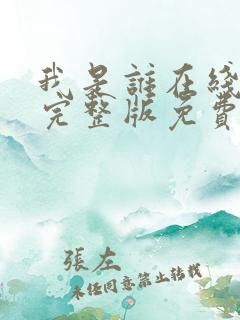 我是誰在綫
完整版免費
張左
未經同意禁止轉載